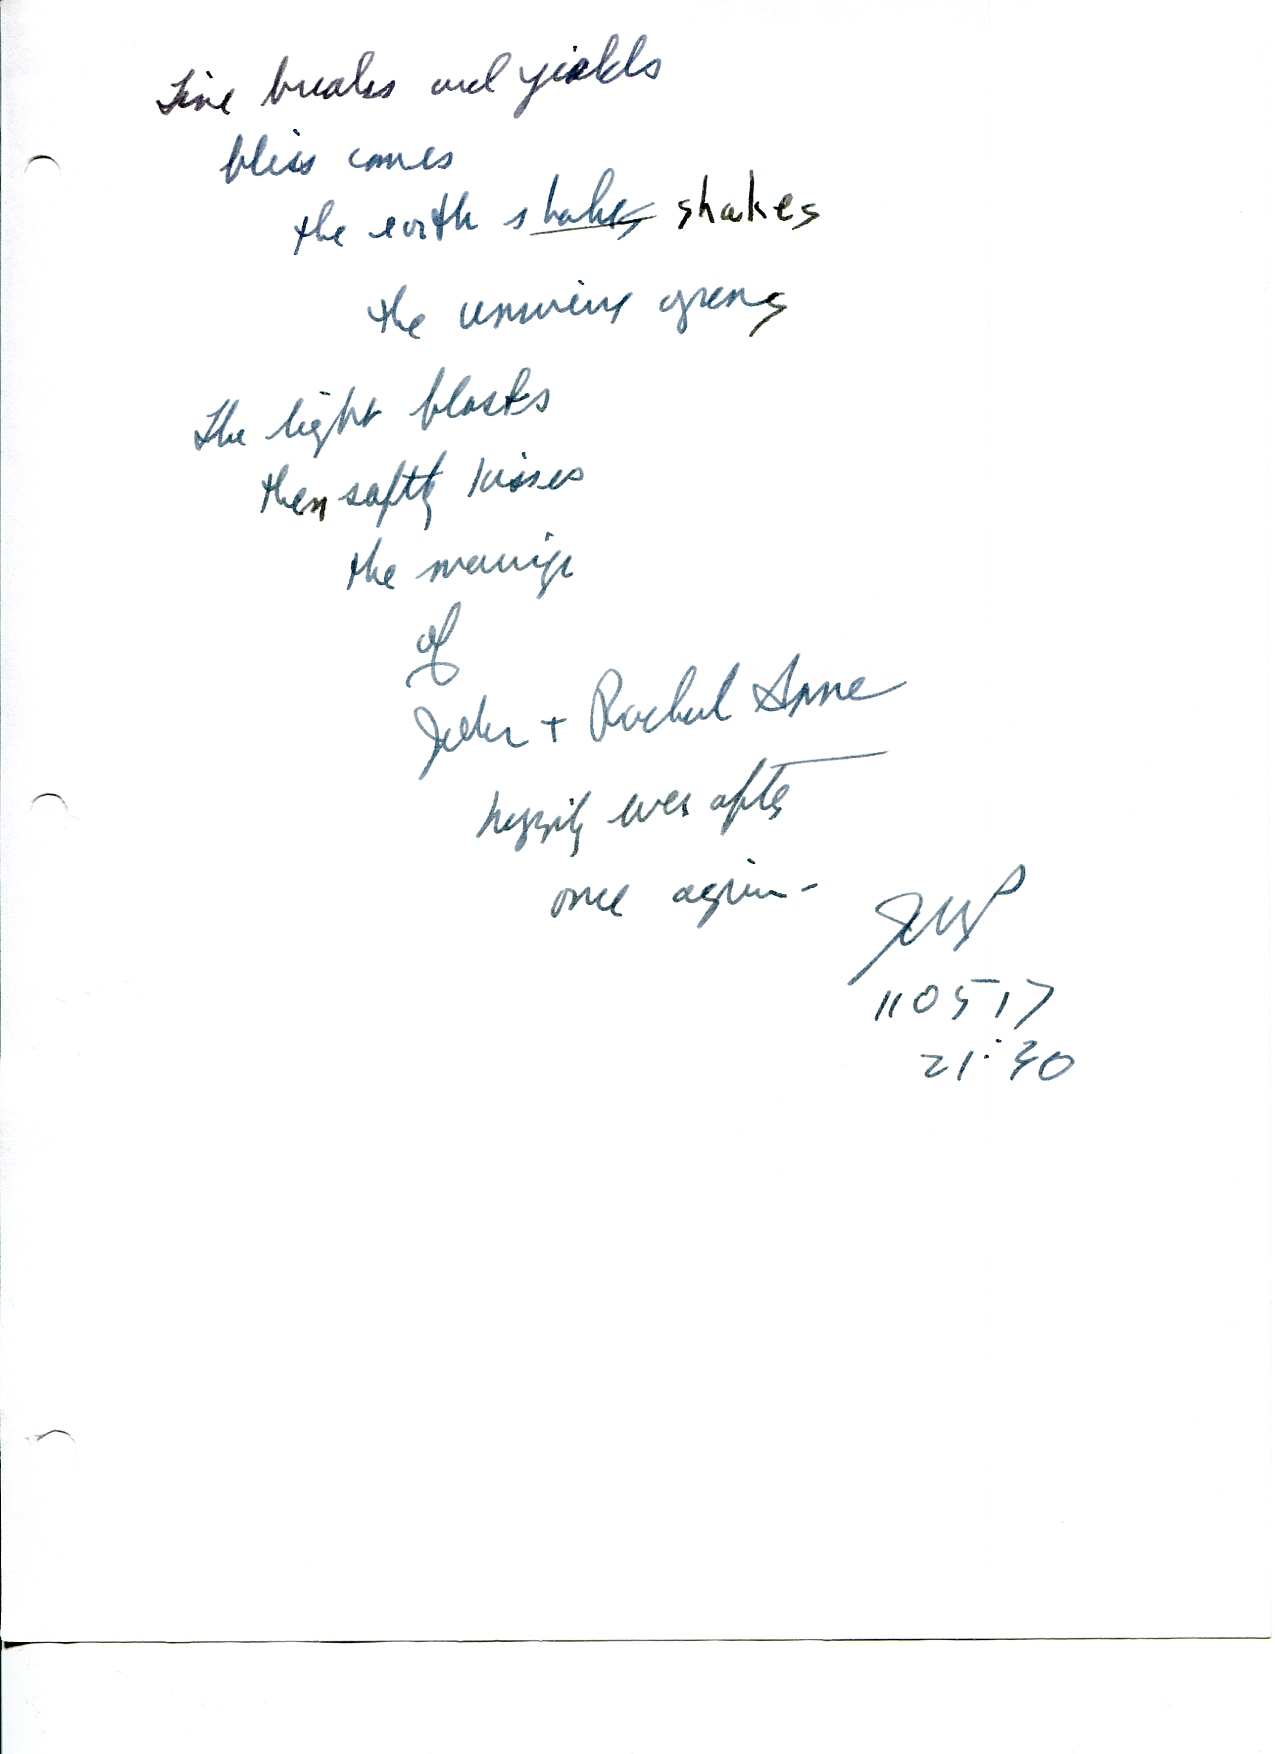 Time breaks and yields
bliss comes
the earth shakes shakes
the universe groans
The light blasts
then softly kisses
the marriage
of
John + Rachel Anne
happily ever after
once again -
JWP
110517
21:30